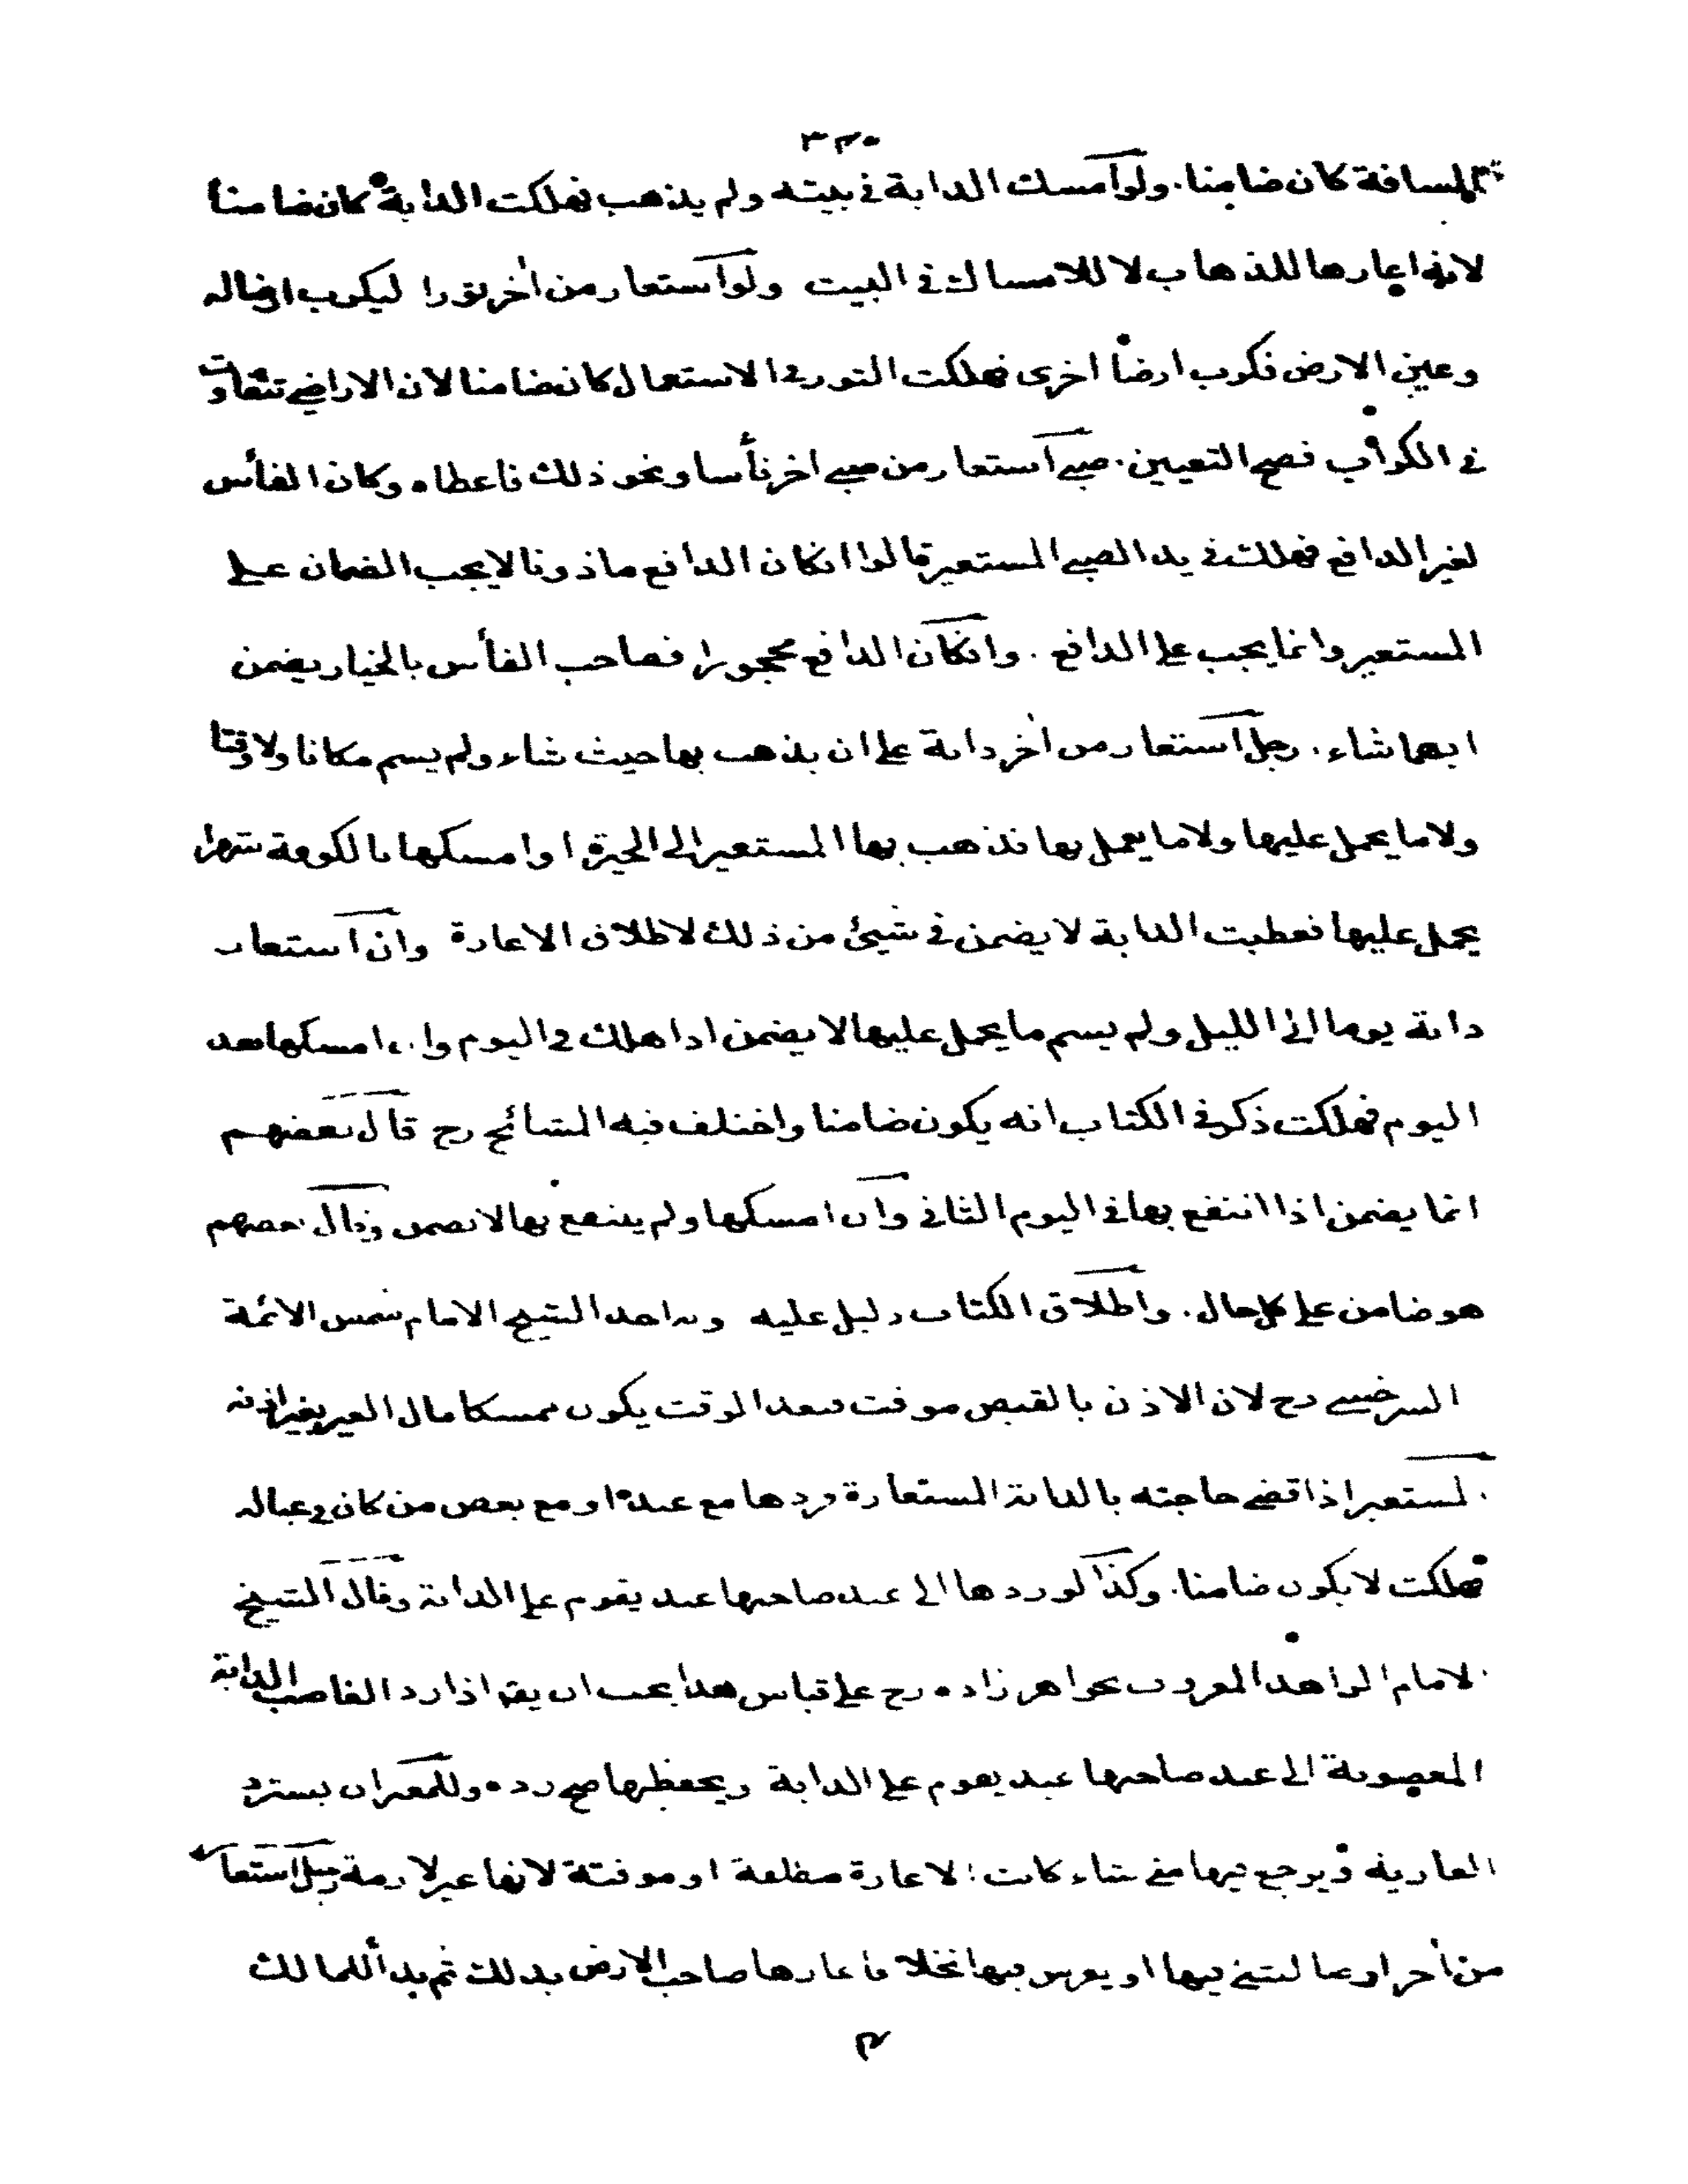 ٣٢٠
المسافة كان ضامنا. ولو أمسك الدابة في بيته ولم يذهب فهلكت الدابة كان ضامنا
لانه اعارها للذهاب لا للامساك في البيت ولو استعار من اخر ثورا ليكرب ارضا له
وعين الارض فكرب ارضا اخرى فهلكت الثور في الاستعمال كان ضامنا لان الاراضي تتفاوت
في الكراب فصح التعيين. صبي استعار من صبي اخر فأسا ونحو ذلك فاعطاه وكان الفأس
لغير الدافع فهلك في يد الصبي المستعير قالوا انكان الدافع ماذونا لا يجب الضمان على
المستعير وانما يجب على الدافع. وانكان الدافع محجورا فصاحب الفأس بالخيار يضمن
ايهما شاء. رجل استعار من اخر دابة على ان يذهب بها حيث شاء ولم يسم مكانا ولا وقتا
ولا ما يحمل عليها ولا ما يعمل بها فذهب بها المستعير الى الحيرة او امسكها بالكوفة شهرا
يحمل عليها فعطبت الدابة لا يضمن في شيئ من ذلك لاطلاق الاعارة وان استعار
دابة يوما الى الليل ولم يسم ما يحمل عليها لا يضمن اذا هلك في اليوم وان امسكها بعد
اليوم فهلكت ذكر في الكتاب انه يكون ضامنا واختلف فيه المشائخ رح قال بعضهم
انما يضمن اذا انتفع بها في اليوم الثاني وان امسكها ولم ينتفع بها لا يضمن وقال بعضهم
هو ضامن على كل حال. واطلاق الكتاب دليل عليه وبه اخذ الشيخ الامام شمس الائمة
السرخسي رح لان الاذن بالقبض موقت فبعد الوقت يكون ممسكا مال الغير بغير اذنه
المستعير اذا قضى حاجته بالدابة المستعارة فردها مع عبده او مع بعض من كان في عياله
فهلكت لا يكون ضامنا. وكذا لو ردها الى عبد صاحبها عبد يقوم على الدابة وقال الشيخ
الامام الزاهد المعروف بخواهر زاده رح على قياس هذا يجب ان يقر اذا رد الغاصب الدابة
المغصوبة الى عبد صاحبها عبد يقوم على الدابة ويحفظها صح رده وللمعير ان يسترد
العارية ويرجع فيها متى شاء كانت الاعارة مطلقة او موقتة لانها غير لازمة رجل استعار
من اخر ارضا ليبني فيها او يغرس فيها نخلا فاعارها صاحب الارض بذلك ثم بدأ للمالك